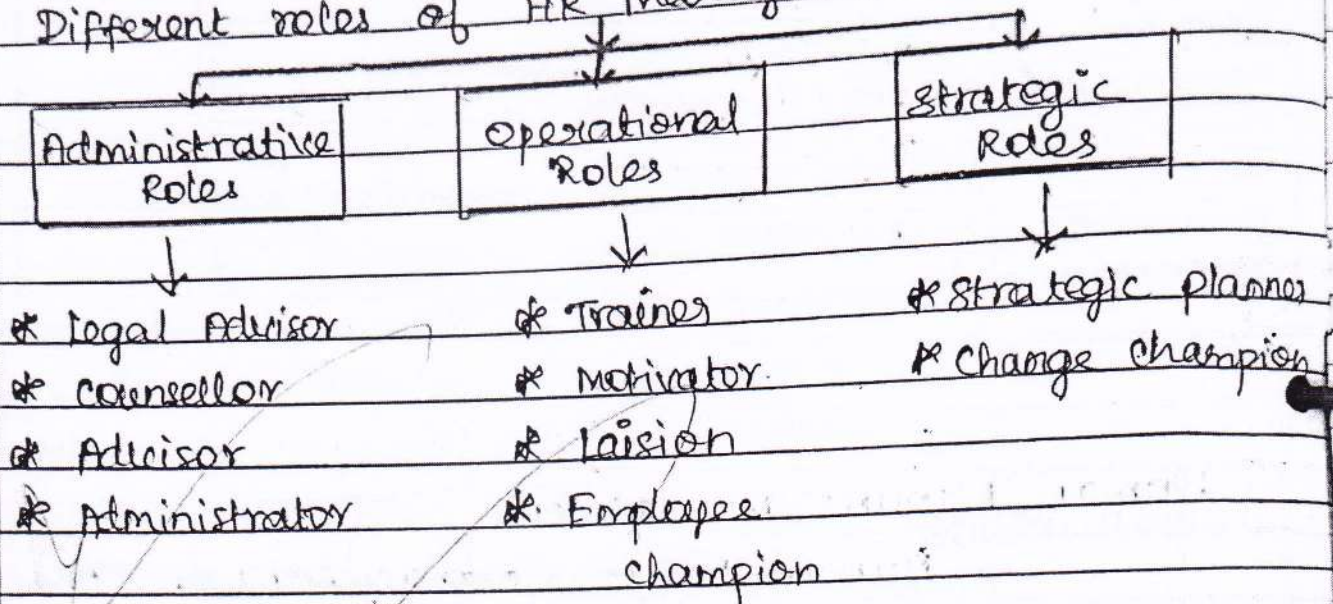 Different roles of HR
Administrative
Roles
Operational
Roles
Strategic
Roles
* Legal Advisor
* Counsellor
* Advisor
* Administrator
* Trainer
* Motivator.
* Laision
* Employee
champion
* Strategic planner
* Change champion